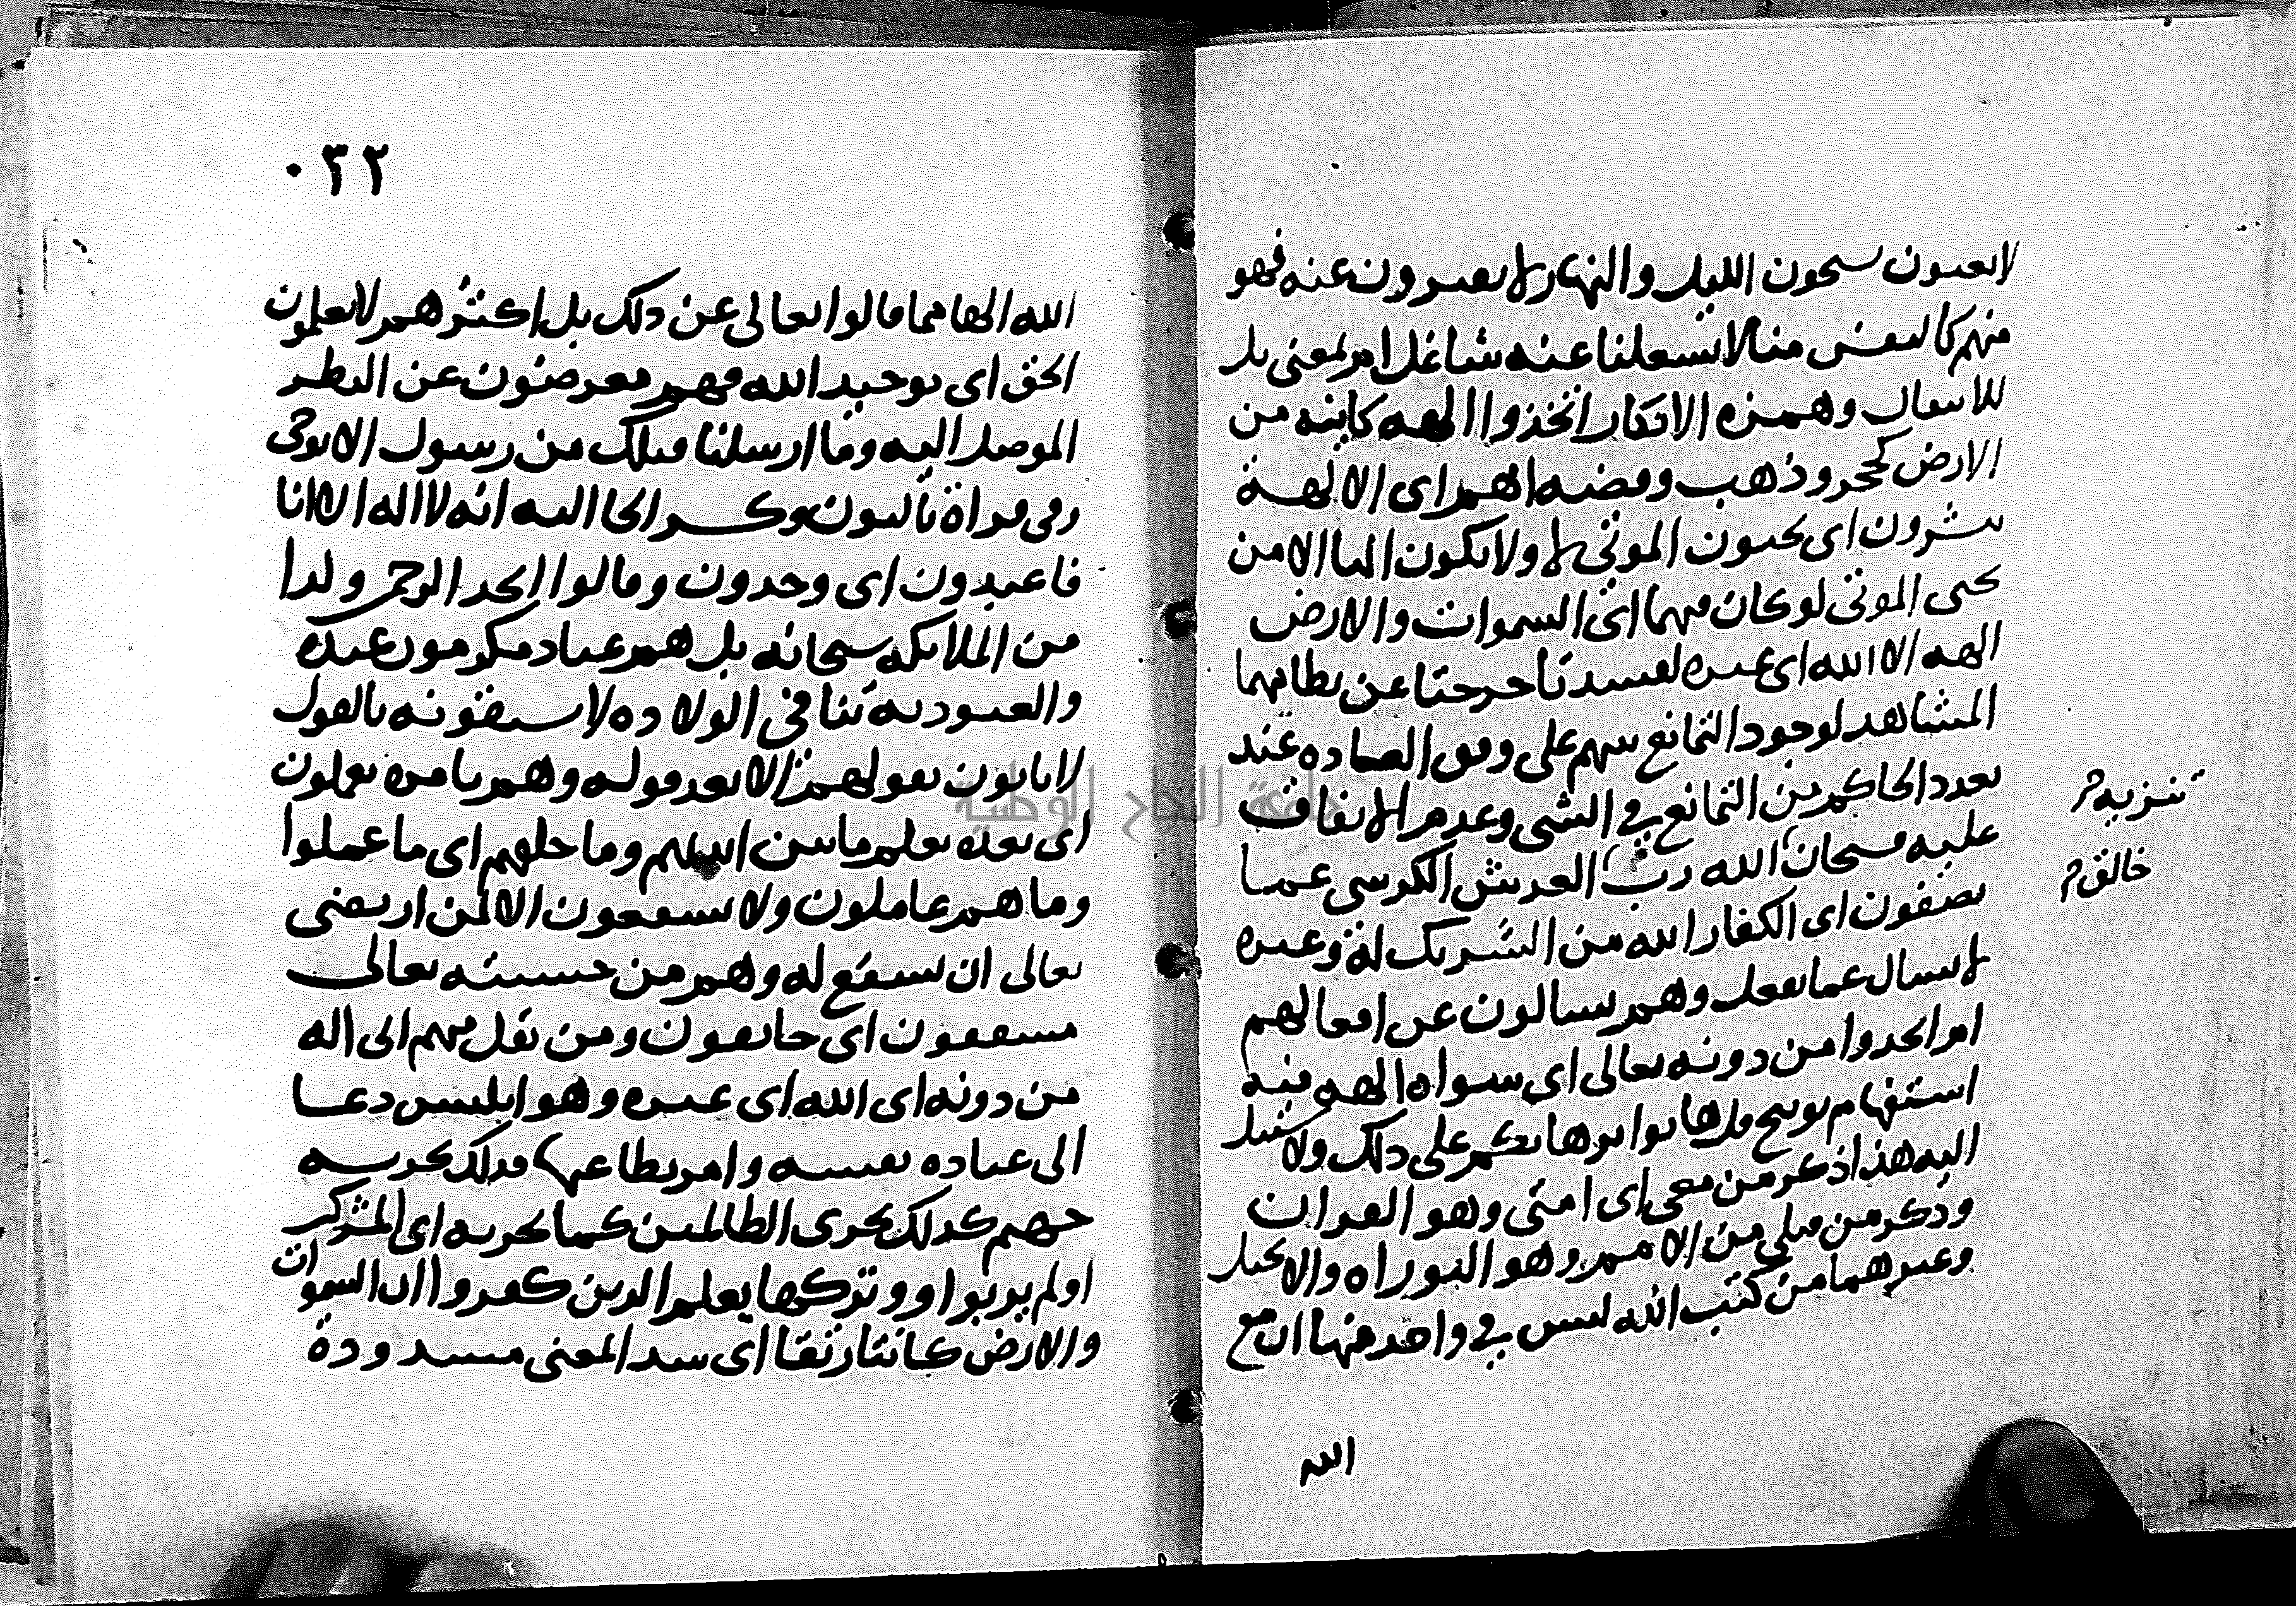 لا يعيون يسبحون الليل والنهار لا يفترون عنه فهو
منهم كالنفس منا لا يشغلنا عنه شاغل ام بمعنى بل
للانتقال وهمزه الانكار اتخذوا الهه كاينه من
الارض كحجر وذهب وفضه اهم اى الالهة
ينشرون اى يحيون الموتى لا ولا يكون الها الا من
يحيى الموتى لو كان فيهما اى السموات والارض
الهه الا الله اى غيره لفسدتا خرجتا عن نظامهما
المشاهد لوجود التمانع بينهم على وفق العاده عند
تعدد الحاكم من التمانع في الشى وعدم الاتفاق
عليه فسبحان الله رب العرش الكرسى عما
يصفون اى الكفار الله من الشريك له وغيره
لا يسال عما يفعل وهم يسالون عن افعالهم
ام اتخدوا من دونه تعالى اى سواه الهه فيه
استفهام توبيخ قل هاتوا برهانكم على دلك ولا سبيل
اليه هذا ذكر من معى اى امتى وهو القران
وذكر من قبلى من الامم وهو التوراه والانجيل
وغيرهما من كتب الله ليس في واحد منها ان مع
تنزيه م
خالق م
الله
٠٣٢
الله الها مما قالوا تعالى عن دلك بل اكثرهم لا يعلمون
الحق اى توحيد الله فهم معرضون عن النظر
الموصل اليه وما ارسلنا قبلك من رسول الا يوحى
وفى قراة بالنون وكسر الحا اليه انه لا اله الا انا
فاعبدون اى وحدون وقالوا اتخد الرحمن ولدا
من الملايكه سبحانه بل هم عباد مكرمون عنده
والعبوديه تنافي الولاده لا يسبقونه بالقول
لا ياتون بقولهم الا بعد قوله وهم بامره يعملون
اى بعده يعلم ما بين ايديهم وما خلفهم اى ما عملوا
وما هم عاملون ولا يشفعون الا لمن ارتضى
تعالى ان يشفع له وهم من خشيته تعالى
مشفقون اى خايفون ومن يقل منهم انى اله
من دونه اى الله اى غيره وهو ابليس دعا
الى عباده نفسه وامر بطاعتها فدلك نجزيه
جهنم كدلك نجزى الظالمين كما نجزيه اى المشركين
اولم ير بواو وتركها يعلم الدين كفروا ان السموات
والارض كانتا رتقا اى سدا لمعنى مسدودة